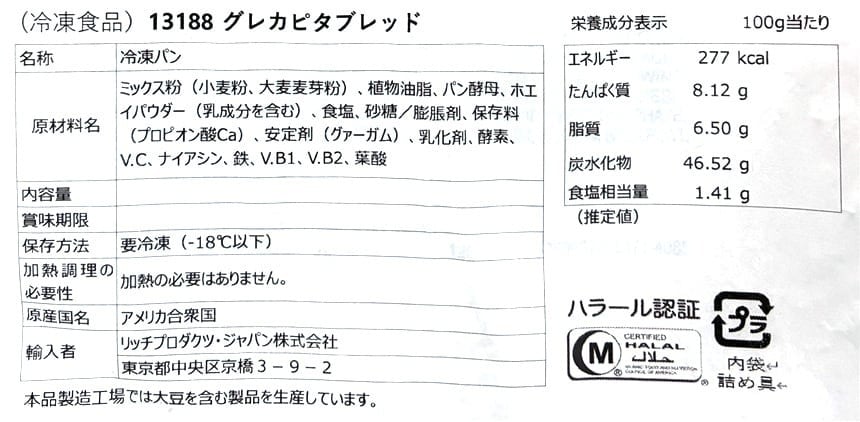 （冷凍食品）13188 グレカピタブレッド
名称 冷凍パン
原材料名 ミックス粉（小麦粉、大麦麦芽粉）、植物油脂、パン酵母、ホエ
イパウダー（乳成分を含む）、食塩、砂糖／膨脹剤、保存料
（プロピオン酸Ca）、安定剤（グァーガム）、乳化剤、酵素、
V.C、ナイアシン、鉄、V.B1、V.B2、葉酸
内容量
賞味期限
保存方法 要冷凍（-18℃以下）
加熱調理の
必要性 加熱の必要はありません。
原産国名 アメリカ合衆国
輸入者 リッチプロダクツ・ジャパン株式会社
東京都中央区京橋３－９－２
本品製造工場では大豆を含む製品を生産しています。
栄養成分表示 100g当たり
エネルギー 277 kcal
たんぱく質 8.12 g
脂質 6.50 g
炭水化物 46.52 g
食塩相当量 1.41 g
（推定値）
ハラール認証
M
CERTIFIED
HALAL
حلال
ISLAMIC FOOD AND NUTRITION
COUNCIL OF AMERICA
®
®
プラ
内袋↵
詰め具↵